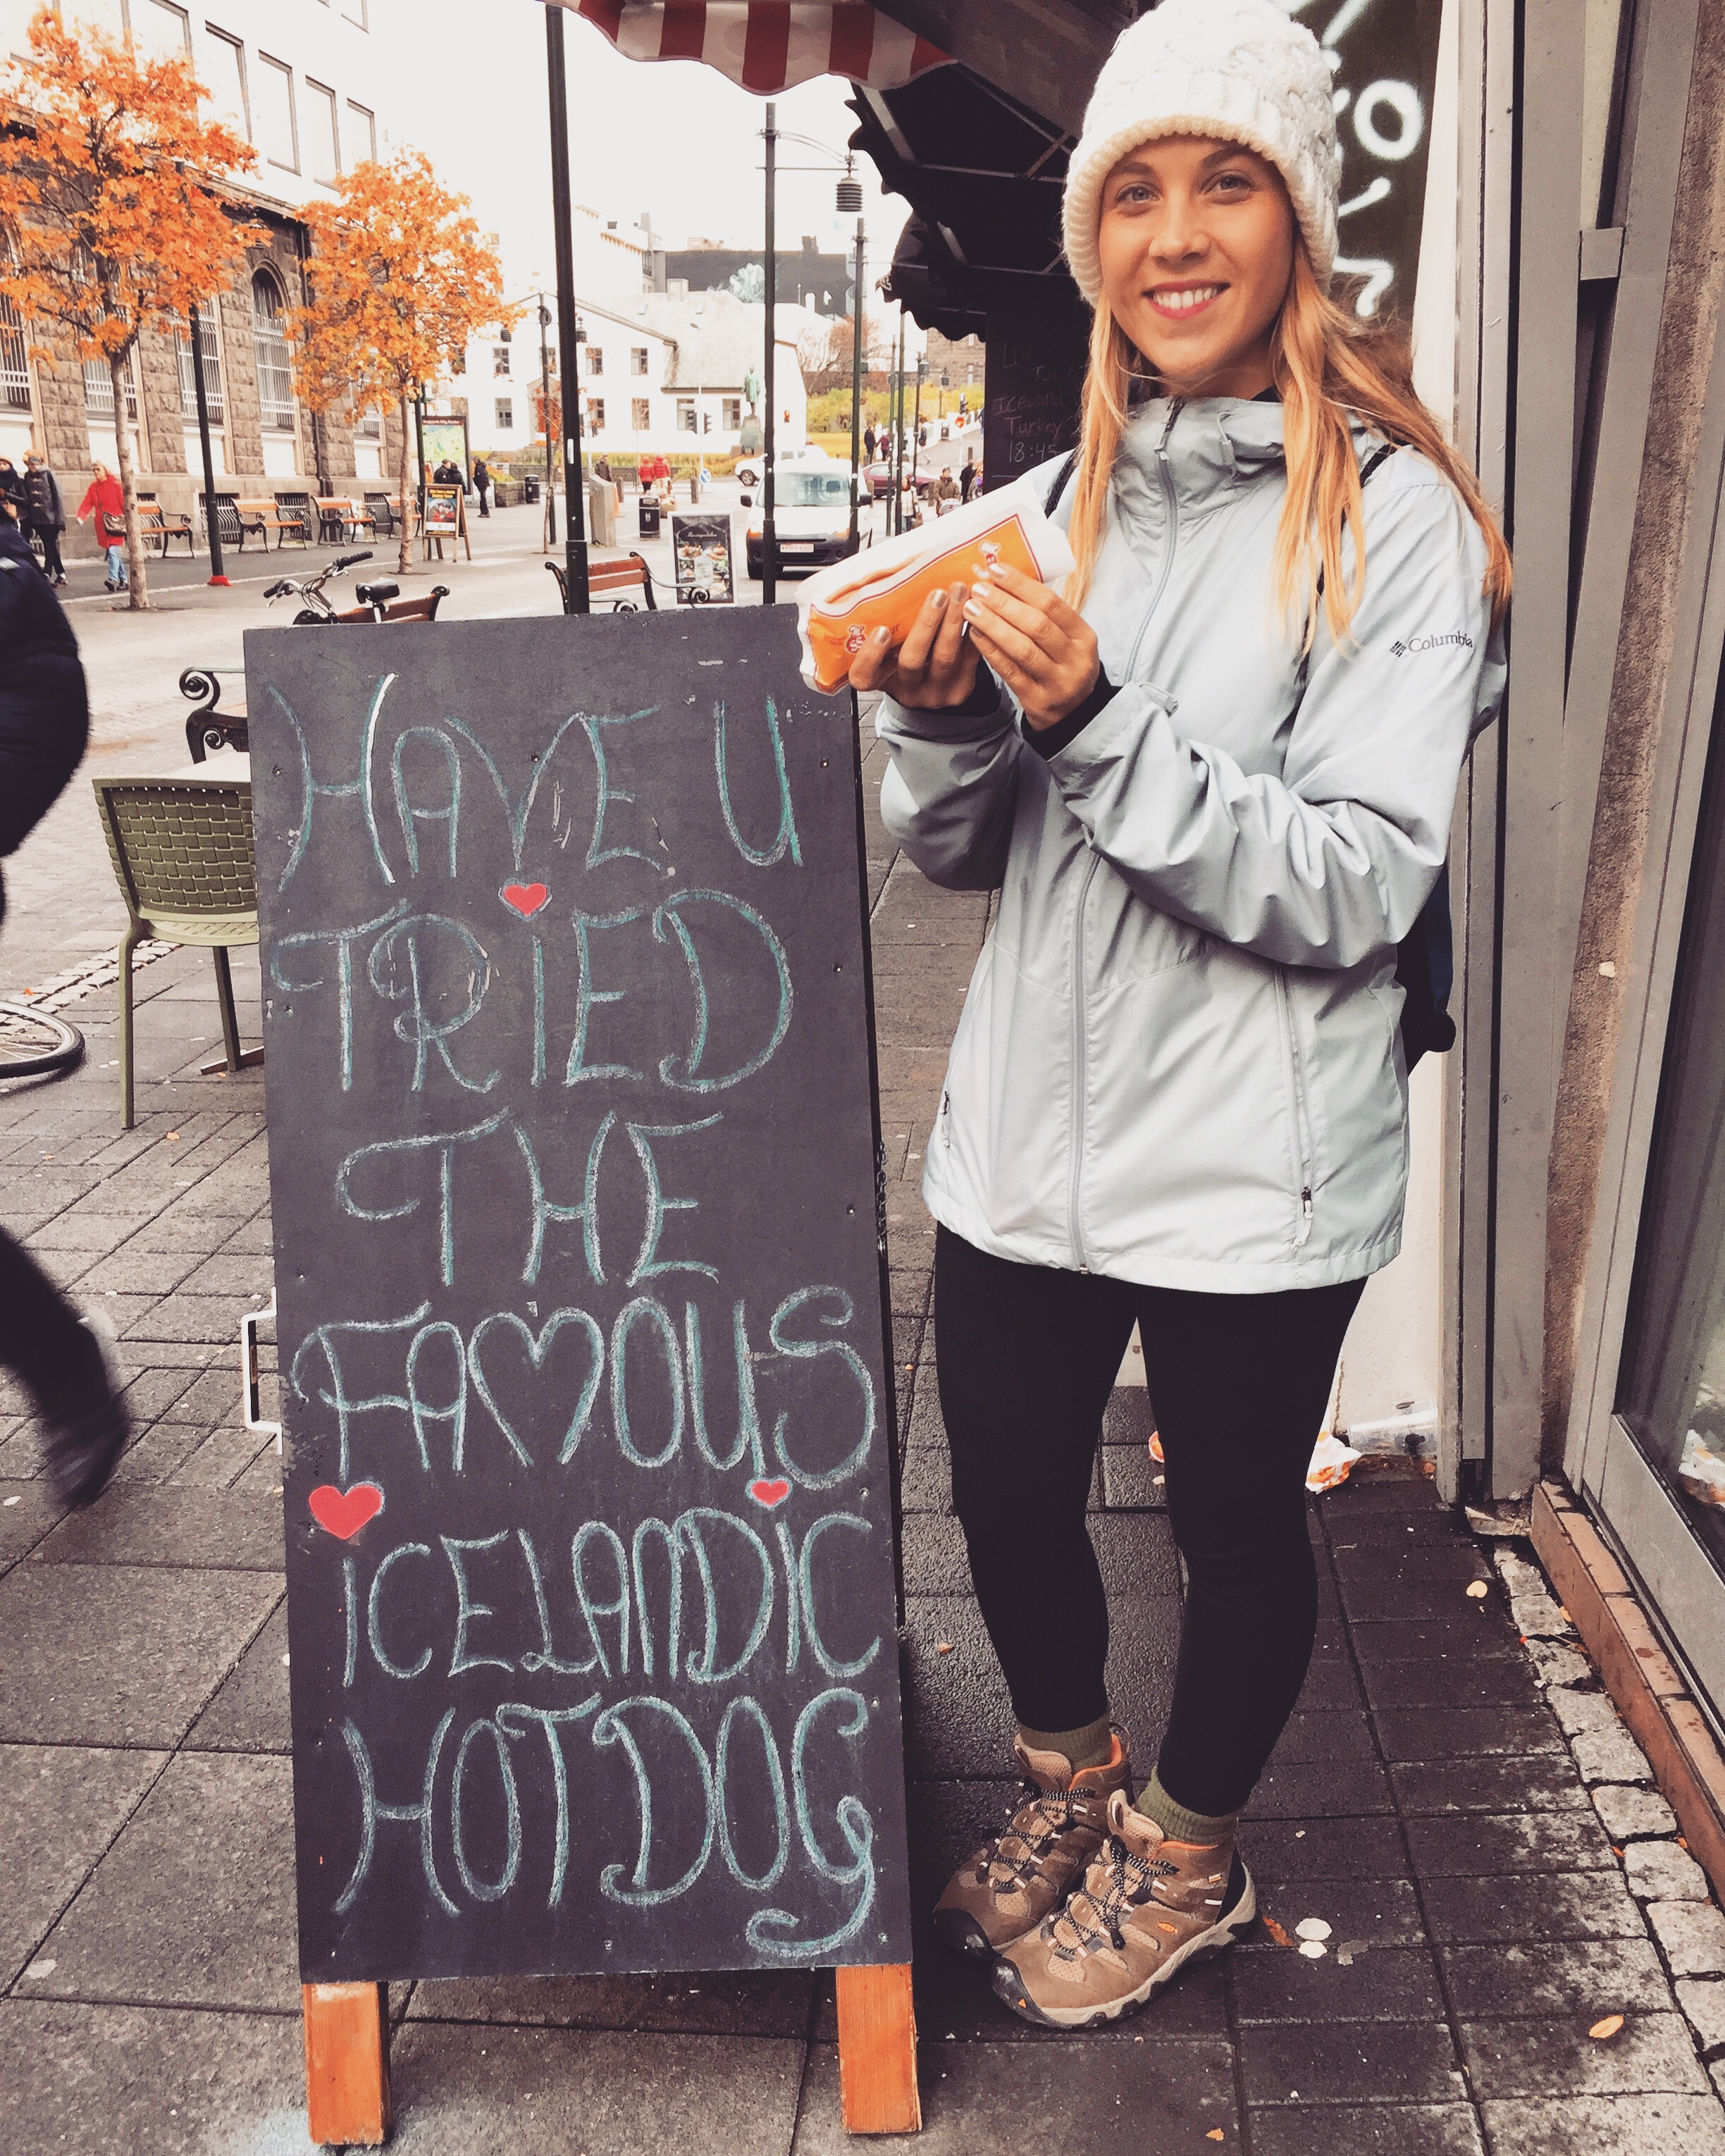 HAVE U
TRiED
THE
FAMOUS
iCELANDiC
HOTDOG
Columbia
ICELAND
Turkey
18:45